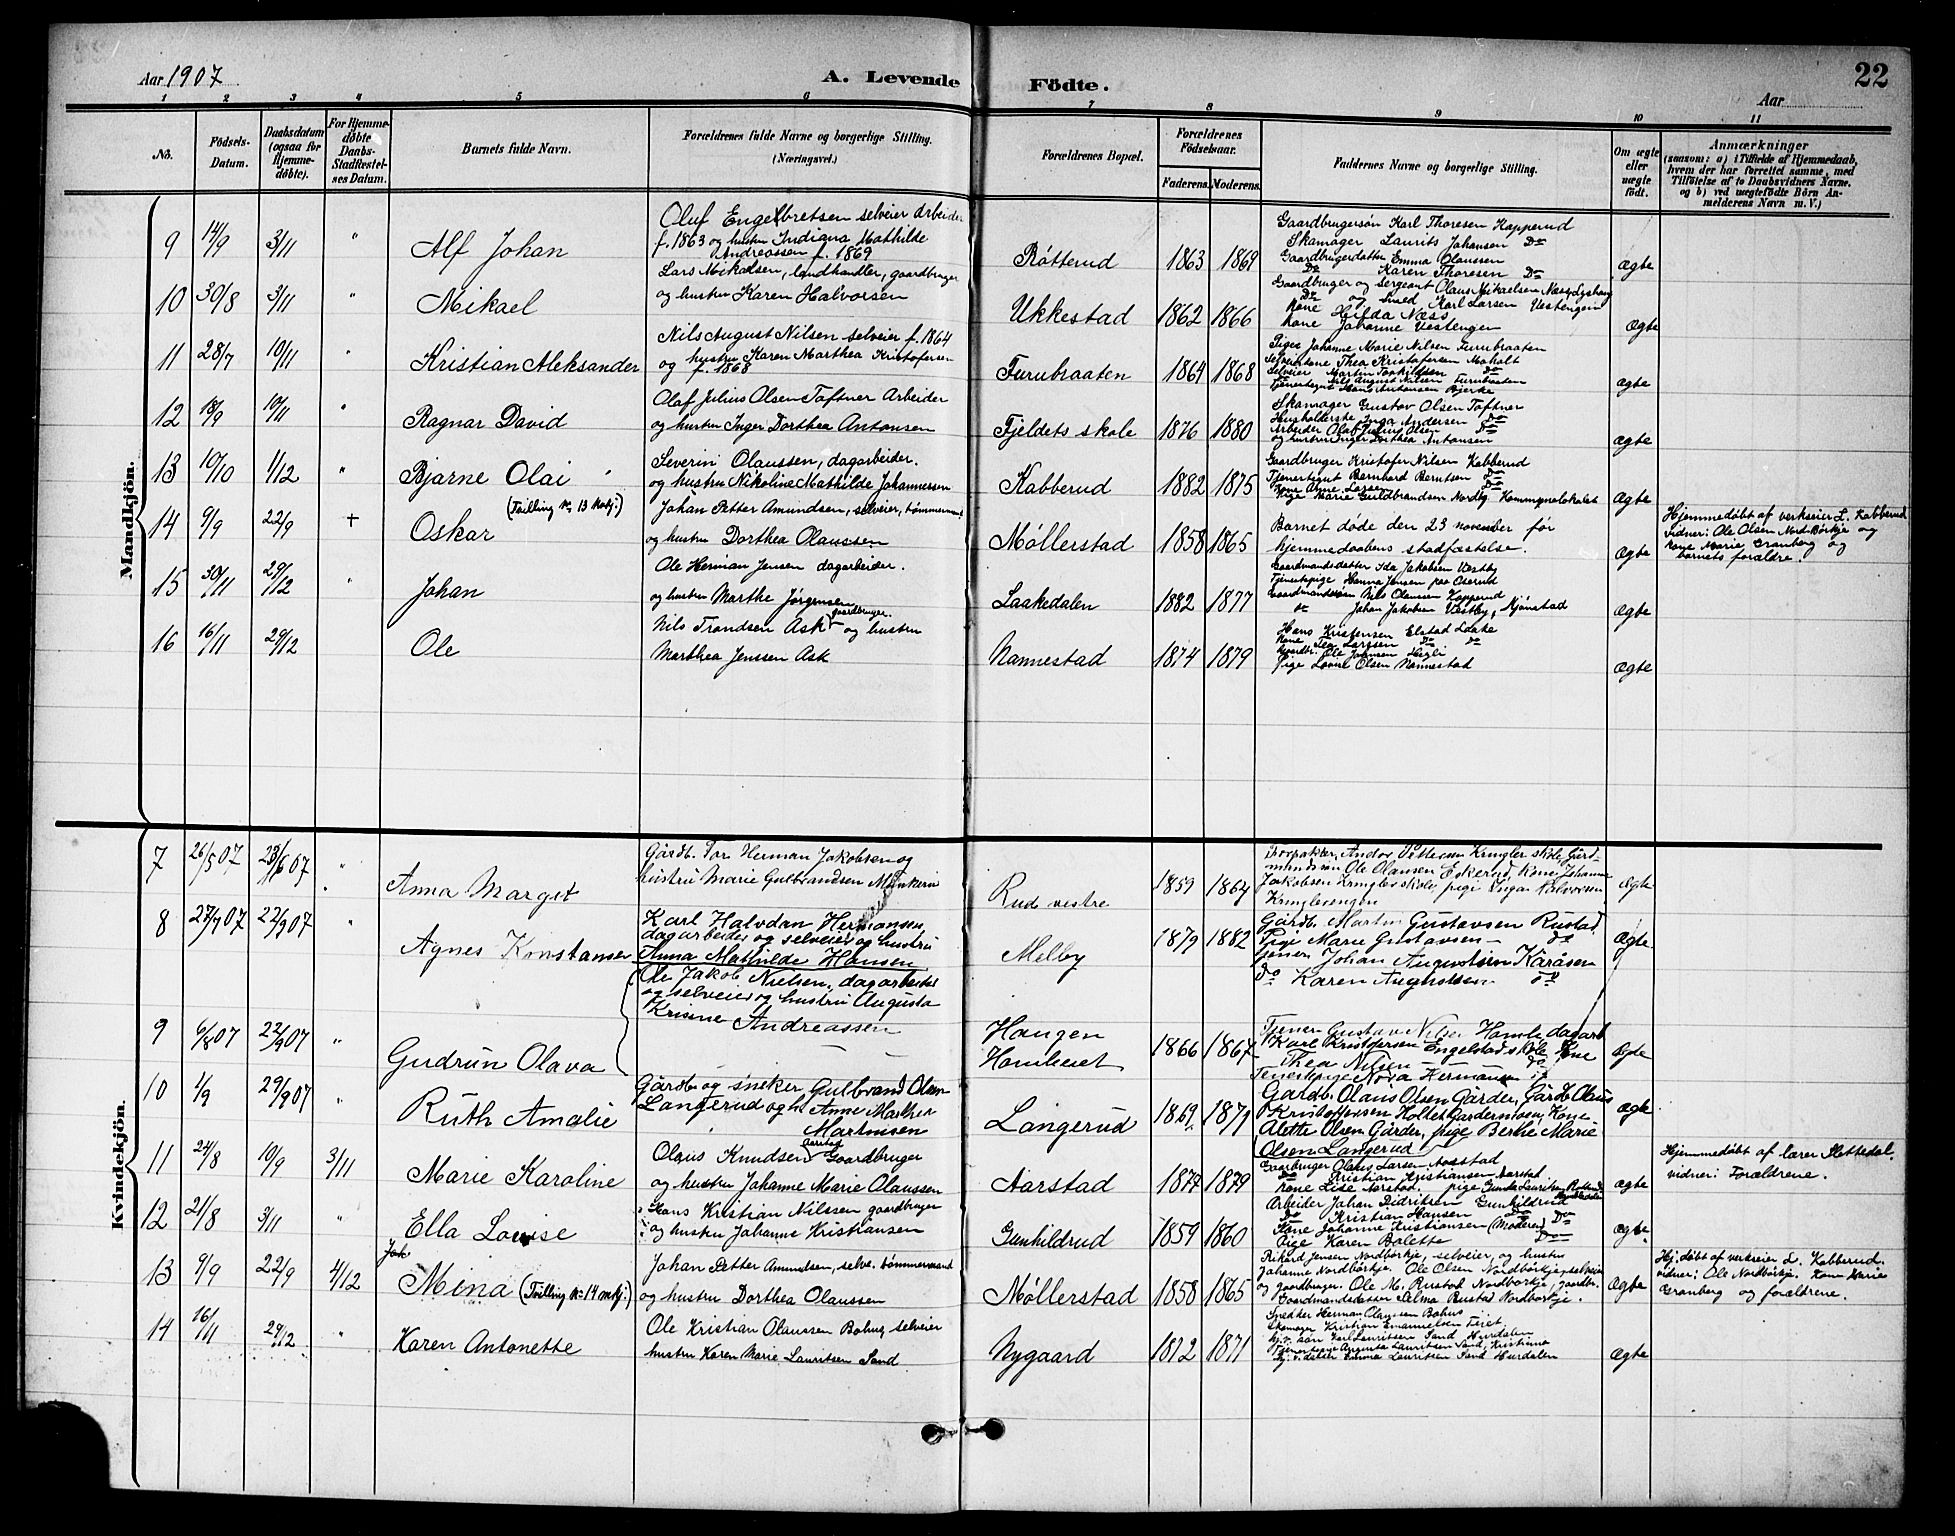 Aar 1907
A. Levende Födte.
22
Aar
1 2 3 4 5 6 7 8 9 10 11
No.
Födsels-Datum.
Daabsdatum (ogsaa for Hjemme-døbte).
For Hjemme-døbte Daabs-Stadfæstel-ses Datum.
Barnets fulde Navn.
Forældrenes fulde Navne og borgerlige Stilling. (Næringsvei.)
Forældrenes Bopæl.
Forældrenes Födselsaar.
Faderens. Moderens.
Faddernes Navne og borgerlige Stilling.
Om ægte eller uægte født.
Anmærkninger
(saasom: a) i Tilfælde af Hjemmedaab, hvem der har forrettet samme, med Tilføielse af to Daabsvidners Navne, og b) ved uægtefødte Börn An-melderens Navn m. V.)
Mandkjön.
9 14/9 3/11 " Alf Johan
Oluf Engelbretsen selveier Arbeider
f. 1863 og hustru Indiana Mathilde
Andreassen f. 1869
Røtterud 1863 1869
Gaardbrugersøn Karl Thoresen Kopperud
Skamager Laurits Johansen Do
Gaardbrugerdatter Emma Olaussen
Do Karen Thoresen Do
Ægte
10 30/8 3/11 " Mikael
Lars Mikaelsen, landhandler, gaardbruger
og hustru Karen Halvorsen
Ukkestad 1862 1866
Gaardbruger og Sergeant Olaus Mikaelsen Næss
Do og Smed Karl Larsen Vestengen
Kone Hilda Næss
Kone Johanne Vestengen
Ægte
11 28/7 10/11 " Kristian Aleksander
Nils August Nilsen selveier f. 1864
og hustru Karen Marthea Kristofersen
f. 1868
Furubraaten 1864 1868
Pige Johanne Marie Nilsen Furubraaten
Selveierkone Thea Kristofersen Moholt
Selveier Martin Torkildsen Do
Nils August Nilsen Furubraaten
Tjenertegut Hans Antonsen Bjerke
Ægte
12 18/9 10/11 " Ragnar David
Olaf Julius Olsen Toftner Arbeider
og hustru Inger Dorthea Antonsen
Fjeldets skole 1876 1880
Skamager Gustav Olsen Toftner
Husholderske Inga Andersen Do
Arbeider Olaf Julius Olsen Do
og hustru Inger Dorthea Antonsen
Ægte
13 10/10 1/12 " Bjarne Olai
Severin Olaussen, dagarbeider.
og hustru Nikoline Mathilde Johannersen
Kabberud 1882 1875
Gaardbruger Kristofer Nilsen Kabberud
Tjenertegut Bernhard Berntsen Do
Kone Anne Larsen Do
Pige Marie Guldbrandsen Nordby Kommunelokalet
Ægte
14 9/9 22/9 + Oskar
(Tvilling No 13 kvkj:)
Johan Petter Amundsen, selveier, tømmermand
og hustru Dorthea Olaussen
Møllerstad 1858 1865
Barnet døde den 23 november før
hjemmedaabens stadfæstelse.
Ægte
Hjemmedøbt af verkseier L. Kabberud
Vidner: Ole Olsen Nord-Børkje og
kone Marie Granberg og
barnets forældre.
15 30/11 29/12 " Johan
Ole Herman Jensen dagarbeider.
og hustru Marthe Jørgensen
Laakedalen 1882 1877
Gaardmandsdatter Ida Jakobsen Vestby
Tjenestepige Hanna Jensen paa Oserud
Gaardmandssøn Nils Olaussen Kopperud
Do Johan Jakobsen Vestby, Mjønstad
Ægte
16 16/11 29/12 Ole
Nils Trondsen Ask gaardbruger og hustru
Marthea Jenssen Ask
Nannestad 1874 1879
Hans Kristensen Elstad Laake
Kone Tea Larssen Do Do
Ole Johnsen Hegli
Pige Lovise Olsen Nannestad
Ægte
Kvindekjön.
7 26/5 07 23/6 07 " Anna Marget
Gårdb. Tor Herman Jakobsen og
hustru Marie Gulbrandsen Munkerud
Rud vestre 1859 1864
Andor Pettersen Kringler skole, Gård-
mandssøn Ole Olausen Eskerud, Kone Johanne
Jakobsen Kringler skole, pige Ingar Halvorsen
Kringlerengen
Ægte
8 27/7 07 22/9 07 " Agnes Konstanse
Karl Halvdan Hermansen
dagarbeider og selveier og hustru
Anna Mathilde Hansen
Melby 1879 1882
Gårdb. Martin Gustavsen Rustad
Pige Marie Gustavsen - do
tjener Johan Augustsen Karåsen
do Karen Augustsen do
Ægte
9 6/8 07 22/9 07 " Gudrun Olava
Ole Jakob Nielsen, dagarbeider
og selveier og hustru Augusta
Krisine Andreassen
Haugen
Homleiet 1866 1867
Tjener Gustav Nilsen Homle, dagarb
Karl Kristofersen Engelstad skole, Kone
Thea Nilsen do
Tenestepige Nora Hermansen
Ægte
10 1/9 29/9 07 " Ruth Amalie
Gårdb og sneker Gulbrand Olsen
Langerud og h. Anne Marthea
Martinsen
Langerud 1869 1871
Gårdb. Olaus Olsen Gårder, Gårdb Olaus
Kristoffersen Holter Gardermoen, Kone
Alette Olsen Gårder, pige Berthe Marie
Olsen Langerud
Ægte
11 24/8 10/9 3/11 Marie Karoline
Olaus Knudsen Aarstad Gaardbruger
og hustru Johanne Marie Olaussen
Aarstad 1877 1879
Gaarbruger Olaus Larsen Aarstad
Do Kristian Kristiansen Aarstad
Kone Lise Aarstad. pige Gunda Lauritsen
Ægte
Hjemmedøbt af lærer Slettedal.
vidner: Forældrene.
12 21/8 3/11 " Ella Lovise
Hans Kristian Nilssen gaardbruger
og hustru Johanne Kristiansen
Gunhildrud 1859 1860
Arbeider Johan Didriksen Gunhildrud
Do Kristian Hansen Do
Kone Johanne Kristiansen (Moderen) Do
Pige Karen Bolette Do
Ægte
13 9/9 22/9 4/12 Mina (Tvilling No 14 mkj:)
Johan Petter Amundsen, selve. tømmermand
og hustru Dorthea Olaussen
Møllerstad 1858 1865
Rikard Jensen Nordbörkje, selveier, og hustru
Johanne Nordbörkje. Ole Olsen Nordbörkje, selveier
og gaardbruger. Ole M. Rustad Nordbörkje, gaardbr.
Gaardmandsdatter Selma Rustad Nordbörkje.
Ægte
Hj. døbt af verkseier L. Kabberud.
vidner: Ole Nordbörkje. Kone Marie
Granberg og forældrene.
14 16/11 29/12 " Karen Antonette
Ole Kristian Olaussen Bohus, selveier
hustru Karen Marie Lauritsen Sand
Nygaard 1872 1871
Snekker Herman Olaussen Bohus
Skomager Kristian Emanuelsen Teiet
hj. v. søn Karl Lauritsen Sand Hurdalen
Tjenestepige Augusta Lauritsen Sand, Kristiania
hj. v. datter Emma Lauritsen Sand Hurdalen
Ægte